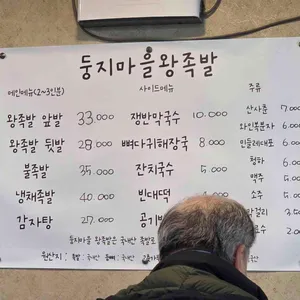 둥지마을왕족발
메인메뉴(2~3인분) 사이드메뉴 주류
왕족발 앞발 33,000 쟁반막국수 10,000 산사춘 7,00
왕족발 뒷발 28,000 뼈다귀해장국 8,000 와인복분자 6,00
불족발 35,000 잔치국수 5,000 민들레대포
냉채족발 40,000 빈대떡 청하
감자탕 27,000 공기밥 맥주
소주
막걸리
둥지마을 왕족발은 국내산 족발
원산지 : 족발 국내산